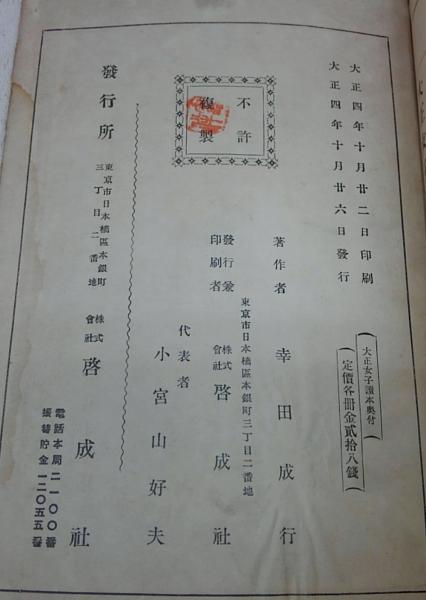 大正四年十月廿二日印刷
大正四年十月廿六日發行
大正女子讀本奥付
定價各册金貳拾八錢
不許
複製
著作者 幸田成行
東京市日本橋區本銀町三丁目二番地
發行兼
印刷者 株式會社 啓成社
代表者 小宮山好夫
發行所 東京市日本橋區本銀町
三丁目二番地 株式會社 啓成社
電話本局二一〇〇番
振替貯金一二〇五五番